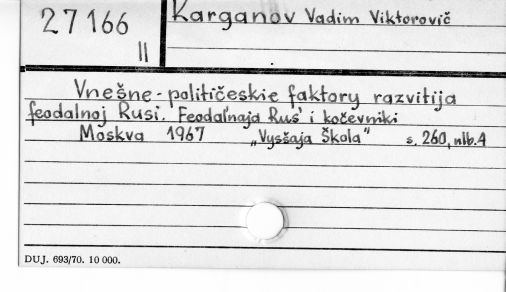 27166
II
Karganov Vadim Viktorovič
Vnešne-političeskie faktory razvitija
feodalnoj Rusi. Feodal'naja Rus' i kočevniki
Moskva 1967 „Vysšaja Škola" s. 260, nlb.4
DUJ. 693/70. 10 000.